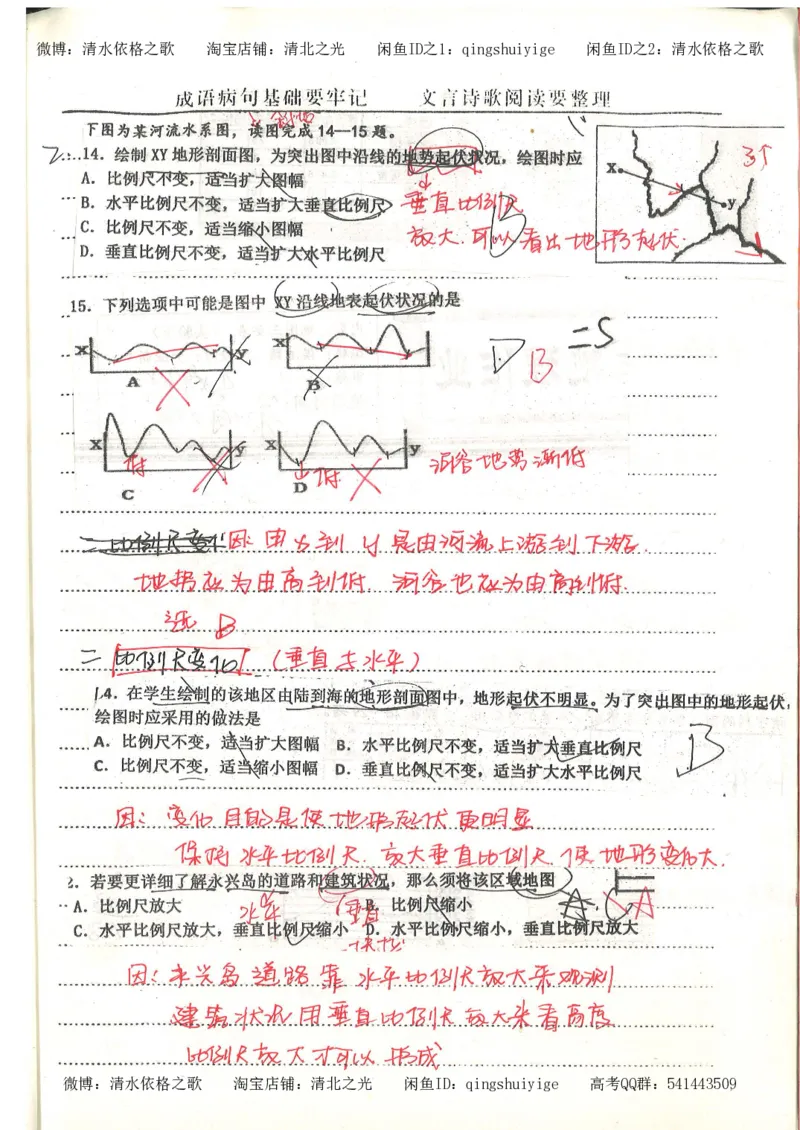 微博：清水依格之歌 淘宝店铺：清北之光 闲鱼ID之1：qingshuiyige 闲鱼ID之2：清水依格之歌
成语病句基础要牢记 文言诗歌阅读要整理
下图为某河流水系图，读图完成14—15题。
14．绘制XY地形剖面图，为突出图中沿线的地势起伏状况，绘图时应
A．比例尺不变，适当扩大图幅
B．水平比例尺不变，适当扩大垂直比例尺
C．比例尺不变，适当缩小图幅
D．垂直比例尺不变，适当扩大水平比例尺
垂直比例尺
放大．可以看出地形起伏．
B
3个
X
y
15．下列选项中可能是图中XY沿线地表起伏状况的是
X y
A
X
B
=5
D B
X y
C
X y
D
河谷地势渐低
因：由X到y是由河流上游到下游．
地势应为由高到低 河谷也应为由高到低．
选 B
二 比例尺变化 （垂直与水平）
14．在学生绘制的该地区由陆到海的地形剖面图中，地形起伏不明显。为了突出图中的地形起伏，
绘图时应采用的做法是
A．比例尺不变，适当扩大图幅 B．水平比例尺不变，适当扩大垂直比例尺
C．比例尺不变，适当缩小图幅 D．垂直比例尺不变，适当扩大水平比例尺
B
因：变化目的是使地形起伏更明显
保持水平比例尺．放大垂直比例尺．使地形变化大．
2．若要更详细了解永兴岛的道路和建筑状况，那么须将该区域地图
A．比例尺放大 B．比例尺缩小
C．水平比例尺放大，垂直比例尺缩小 D．水平比例尺缩小，垂直比例尺放大
水平 垂直
A
因：永兴岛道路靠水平比例尺放大来观测
建筑状况用垂直比例尺放大来看高度
比例尺放大才可以形成
微博：清水依格之歌 淘宝店铺：清北之光 闲鱼ID：qingshuiyige 高考QQ群：541443509